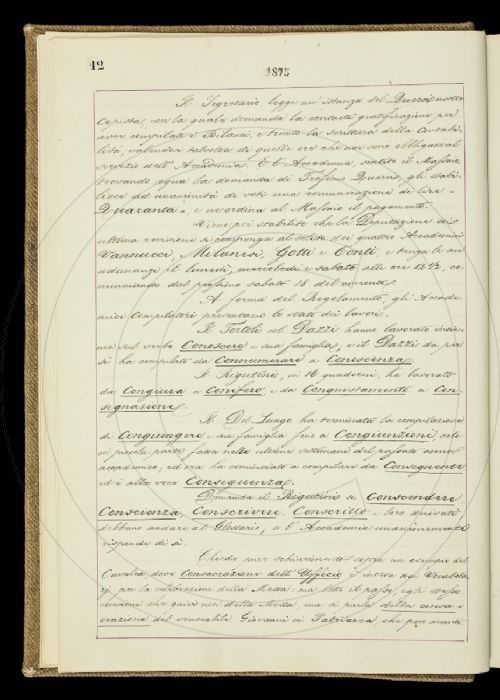 12
1875
Il Segretario legge un'istanza del Querci nostro
Copista con la quale domanda la consueta gratificazione per
aver compilato i Bilanci, e tenuto la scrittura della Contabi-
lità, valendosi talvolta di quelle ore che non sono obbligate al
servizio dell'Accademia. E l'Accademia, sentito il Massaio,
trovando equa la domanda di Querci, gli stabi-
lisce ad unanimità di voti una remunerazione di lire
Quaranta, e ne ordina al Massaio il pagamento.
Viene poi stabilito che la Deputazione di
ultima revisione si componga al solito dei quattro Accademici
Vannucci, Milanesi, Gotti e Conti, e tenga le sue
adunanze il lunedì, mercoledì e sabato alle ore 12½, co-
minciando dal sabato 18 del corrente.
A forma del Regolamento, gli Accade-
mici Compilatori presentano lo stato dei lavori.
Il Tortoli col Dazzi hanno lavorato insie-
me sul verbo Conoscere e sua famiglia, e il Dazzi da per
sé ha compilato da Connumerare a Conoscenza.
Il Rigutini, in 16 quaderni, ha lavorato
da Conquiera a Conifero e da Conquestamente a Con-
segnazione.
Il Del Lungo ha terminata la compilazione
di Congiungere e sua famiglia fino a Congiunzioni, solo
in piccola parte fatta nelle ultime settimane del passato anno
accademico, ed ora ha cominciato a compilare da Conseguente
ed è alla voce Conseguenza.
Domanda il Rigutini se Conscendere
Conscienza, Conscrivere, Conscritto e loro derivati
debbano andare al Glossario, e l'Accademia unanimemente
risponde di sì.
Chiede pure schiarimento sopra un esempio del
Cavalca dove Consacrazione dell'Ufficio è messo nel Vocabola-
rio per la celebrazione della Messa: ma letto il passo, egli stesso
conviene che quivi non della Messa, ma si parla della consa-
crazione del venerabile Giovanni in Patriarca, che poco avanti